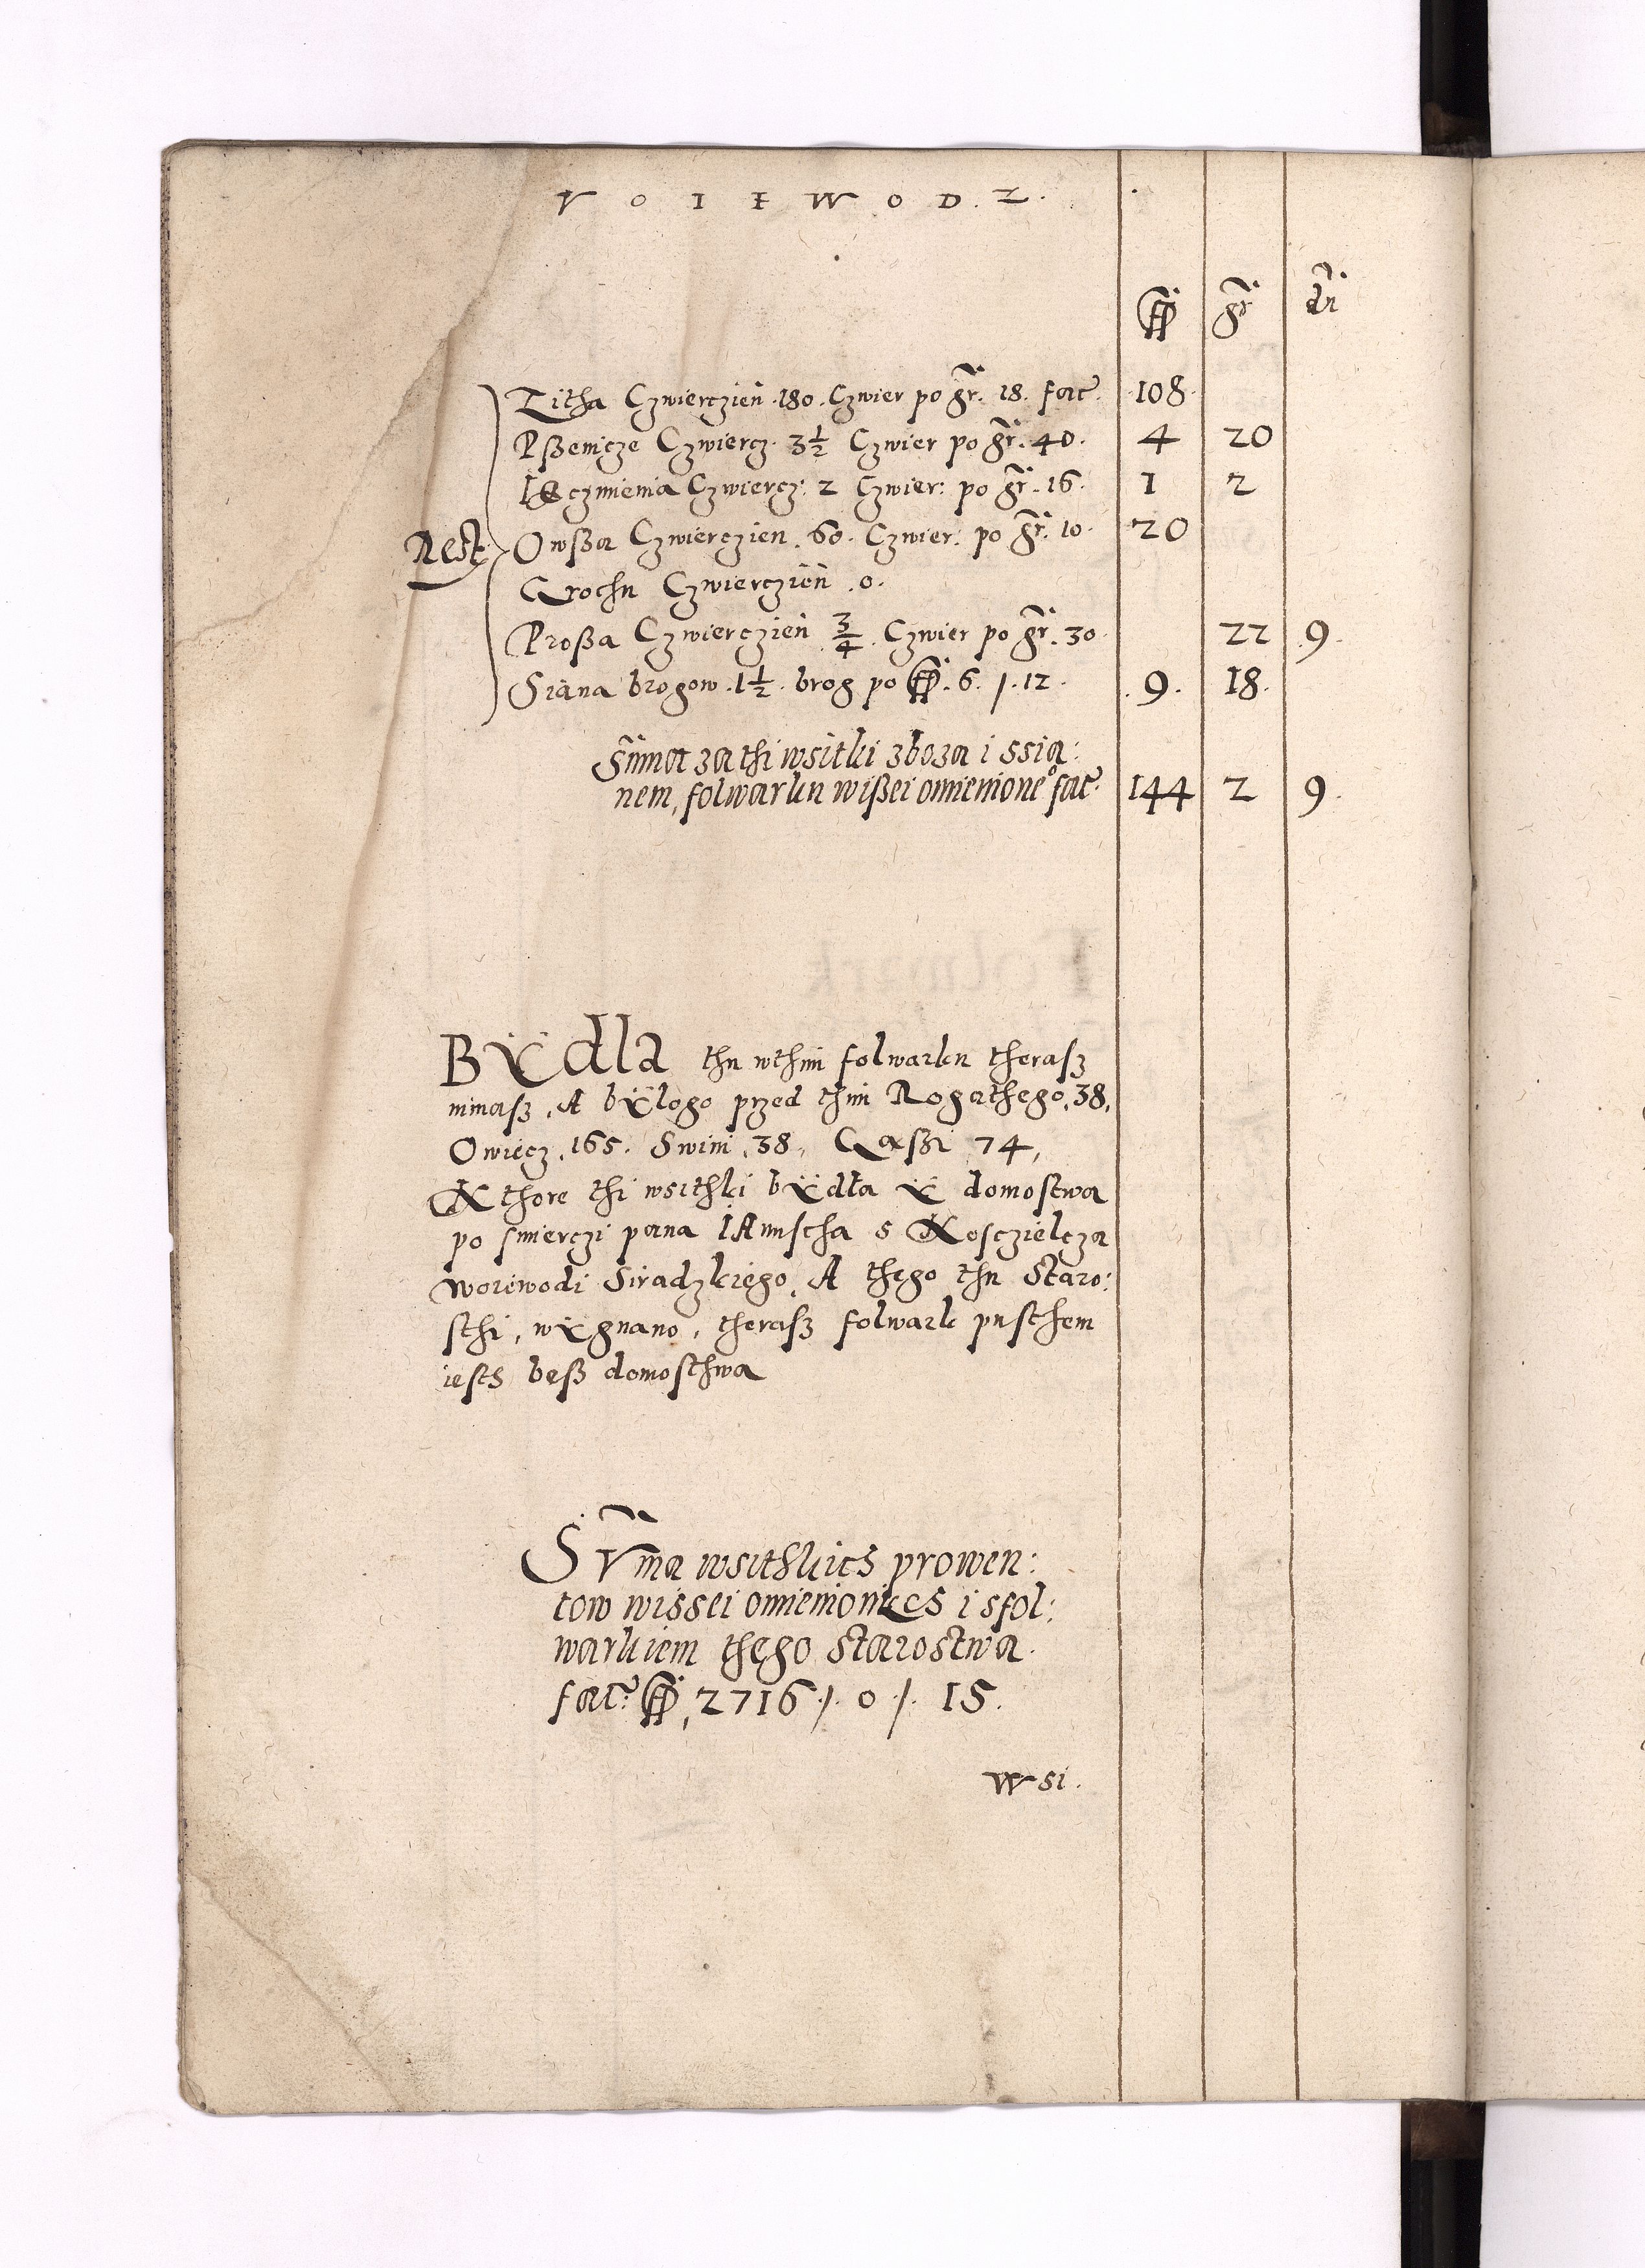 VOIEWOD.Z.
fl gr dn
Zitha Czwierczień .180. Czwier po gr. 18. fac. 108.
Pßenicze Czwiercz. 3½ Czwier po gr. 40. 4 20
Ięczmienia Czwiercz: 2 Czwier: po gr. 16. 1 2
Rest Owßa Czwierczien. 60. Czwier: po gr. 10. 20
Grochu Czwierczień .0.
Proßa Czwierczień ¾. Czwier po gr. 30. 22 9.
Siana brogow .1½. brog po fl. 6. /. 12. .9. 18.
Sūma za thi wsitki zboza i ssia:
nem, folwarku wißei omienioneo fac. 144 2 9.
BÿdlA thu wthim folwarku therasz
nimasz, A bÿlogo przed thim Rogathego, 38,
Owiecz, 165. Swini, 38, Gąßi 74,
Kthore thi wsithki bÿdła ÿ domostwa
po smierczi pana IAnuscha s Kosczielcza
woiewodi Siradzkiego, A thego thu Staro:
sthi, wÿgnano, therasz folwark pusthem
iesth beß domosthwa
SVma wsithkich prowen:
tow wissei omienionich i sfol:
warkiem thego Starostwa
fac. fl, 2716 /. 0 /. 15.
Wsi.